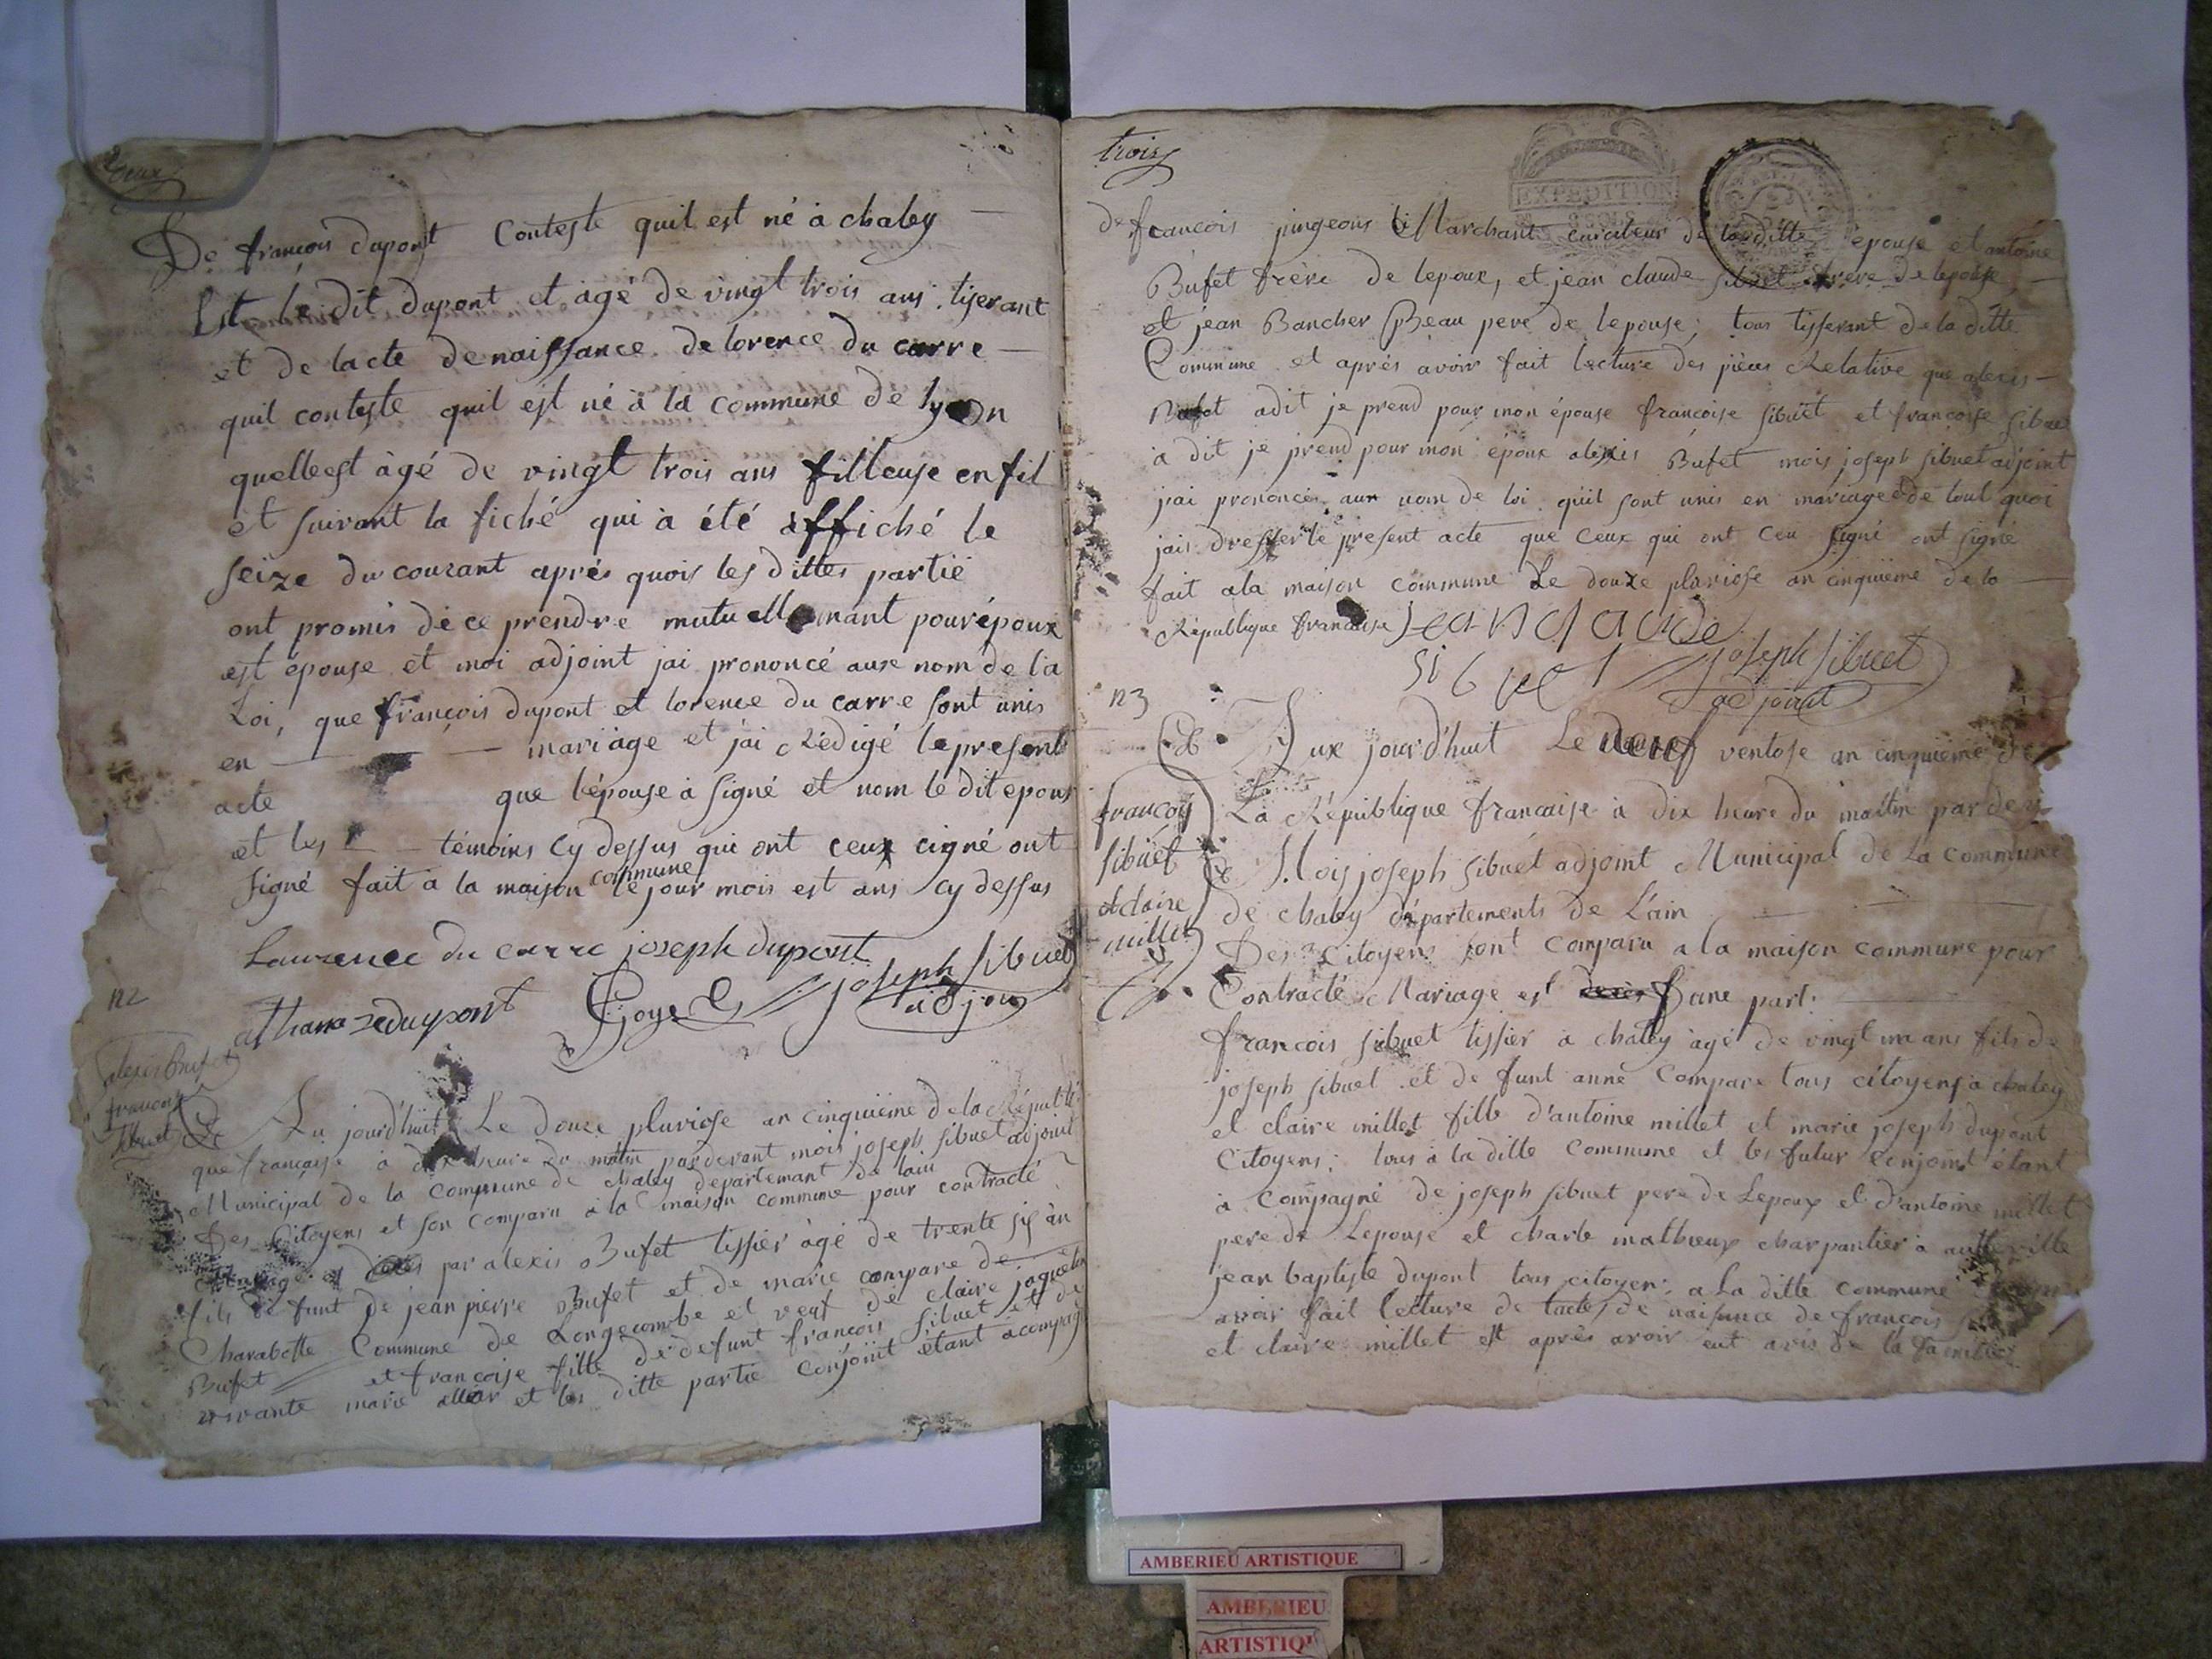 deux
De françois dupont Conteste quil est né à chaley
Est le dit dupont et àgé de vingt trois ans tiserant
et de lacte de naissance de lorence du carre
quil conteste quil est né à la commune de lyon
quelleest àgé de vingt trois ans filleuse en fil
et suivant la fiché qui à été affiché le
seize du courant aprés quois les dittes partie
ont promis de ce prendre mutuellemant pour époux
est épouse et moi adjoint jai prononcé aux nom de la
Loi, que françois dupont et lorence du carre sont unis
en mariàge et j'ai Rédigé le present
acte que l'épouse à signé et nom le dit epoux
et les témoins cy dessus qui ont ceux cigné ont
signé fait à la maison commune le jour mois est ans cy dessus
Laurence du carre joseph dupont
joseph sibuet
adjoin
athanaze dupont Goyet
n2
alexis bufet
françoise
sibuet
Au jourd'huit Le douze pluviose an cinquiême de la Républi
que française à dix heure du matin pardevant mois joseph sibuet adjoint
Municipal de la commune de chaley departemant de lain
Des Citoyens et son comparu à la maison commune pour contracté
par alexis Bufet tissier àgé de trente six àn
fils de funt de jean pierre Bufet et de marie compare de
Charabotte Commune de Longecombe et veuf de claire jaquet
Bufet et françoise fille de defunt françois sibuet et de
vivante marie et les ditte partie conjoint étant acompag
trois
EXPEDITION
de françois pingeons Marchant curateur de laditte épouse et antoine
Bufet frère de lepoux, et jean claude sibuet frere de lepouse
et jean Bancher Beau pere de lepouse; tous tisserant de la ditte
Commune et aprés àvoir fait lecture des pièces Relative que alexis
Bufet adit je prend pour mon épouse françoise sibuet et françoise sibuet
à dit je prend pour mon époux alexis Bufet mois joseph sibuet adjoint
jai prononcés aux nom de loi quil sont unis en mariage et de tout quoi
jais dresser le present acte que ceux qui ont ceu signé ont signé
fait ala maison commune Le douze pluviose an cinquiême de la
République française Jean claude
sibuet joseph sibuet
adjoint
n3
Aux jourd'huit Le neuf ventose an cinquiême de
La République française à dix heure du maitin par de
Mois joseph sibuet adjoint Municipal de La commune
de chaley départements de L'ain
françois
sibuet
et claire
millet
Des Citoyens sont comparu a la maison commune pour
Contracté Mariage est Dune part
françois sibuet tissier à chaley àgé de vingt un ans fils de
joseph sibuet et de funt anne Compare tous citoyens à chaley
et claire millet fille d'antoine millet et marie joseph dupont
Citoyens; tous à la ditte Commune et les futur conjoint étant
à compagné de joseph sibuet pere de Lepoux et d'antoine millet
pere de Lepouse et charle mathieux charpantier à autteville
jean baptiste dupont tous citoyen; a La ditte commune
avoir fait lecture de lactes de naissance de françois
et claire millet est après avoir eut avis de la famille
AMBERIEU ARTISTIQUE
AMBERIEU
ARTISTIQU